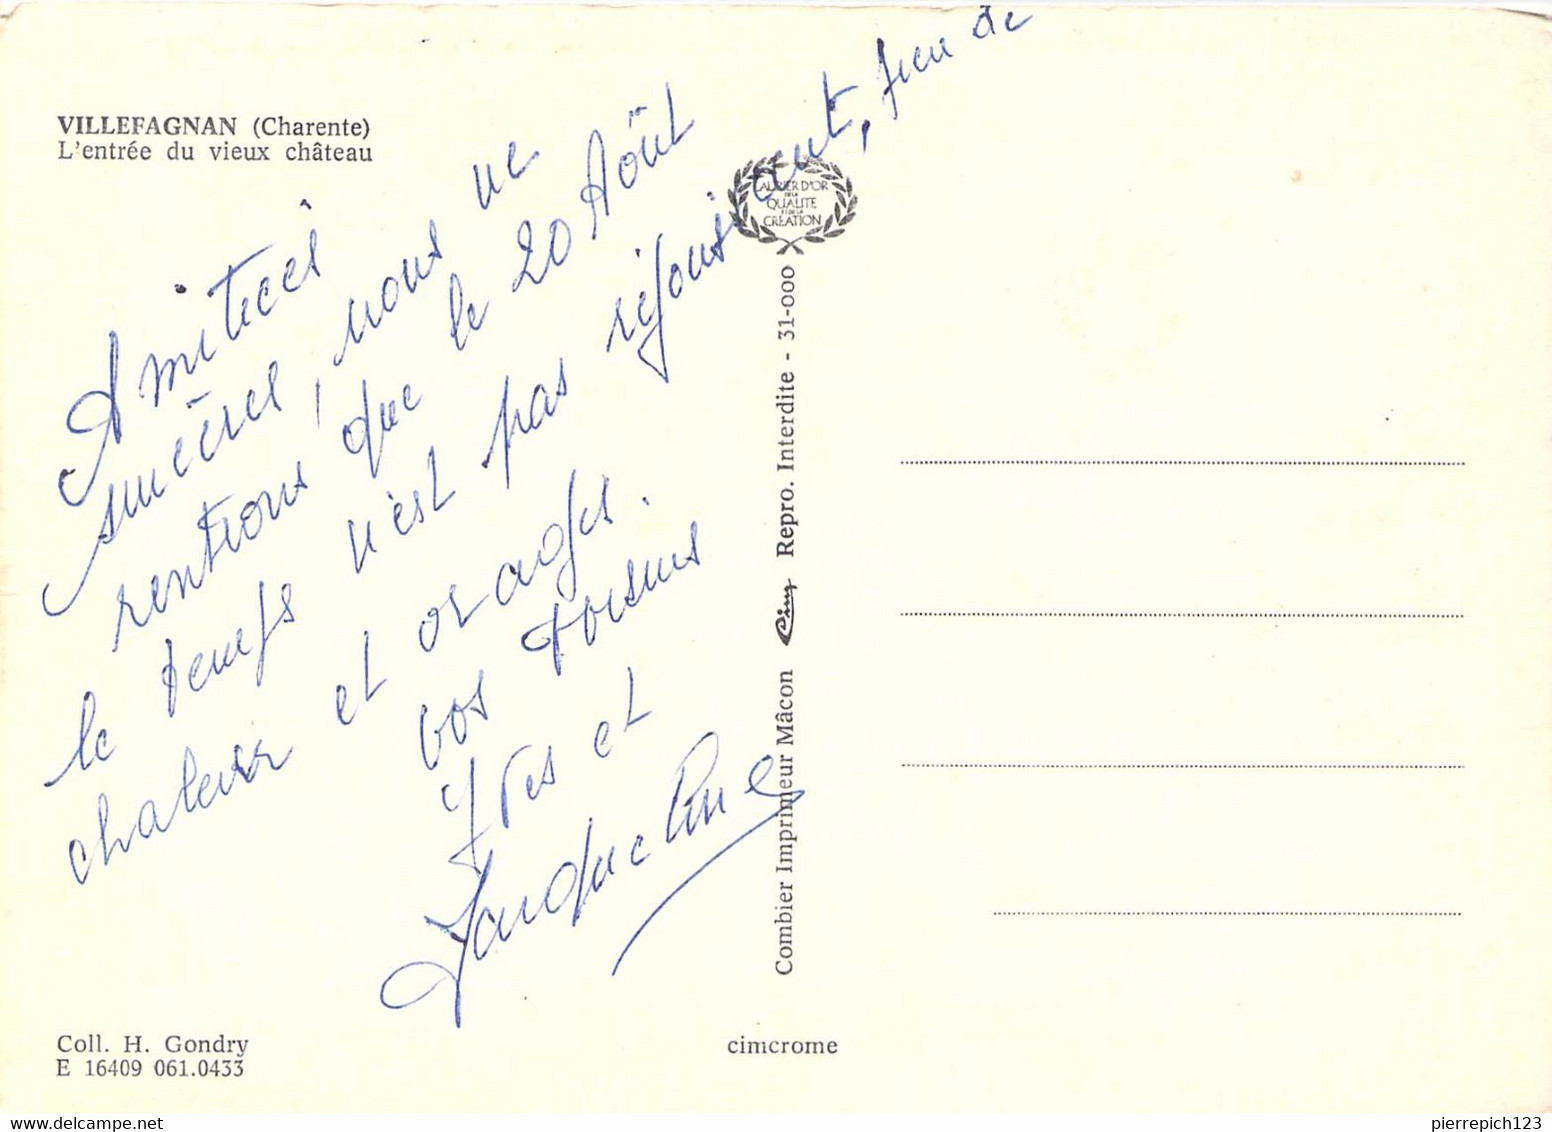 VILLEFAGNAN (Charente)
L'entrée du vieux château
Amitiés
sincères, nous ne
rentrons que le 20 Aôut
le temps n'est pas réjouissant, peu de
chaleur et orages.
vos voisins
Yves et
Jacqueline
LAURIER D'OR
DE LA
QUALITE
ET DE LA
CREATION
Combier Imprimeur Mâcon Cim Repro. Interdite - 31-000
Coll. H. Gondry
E 16409 061.0433
cimcrome
pierrepich123